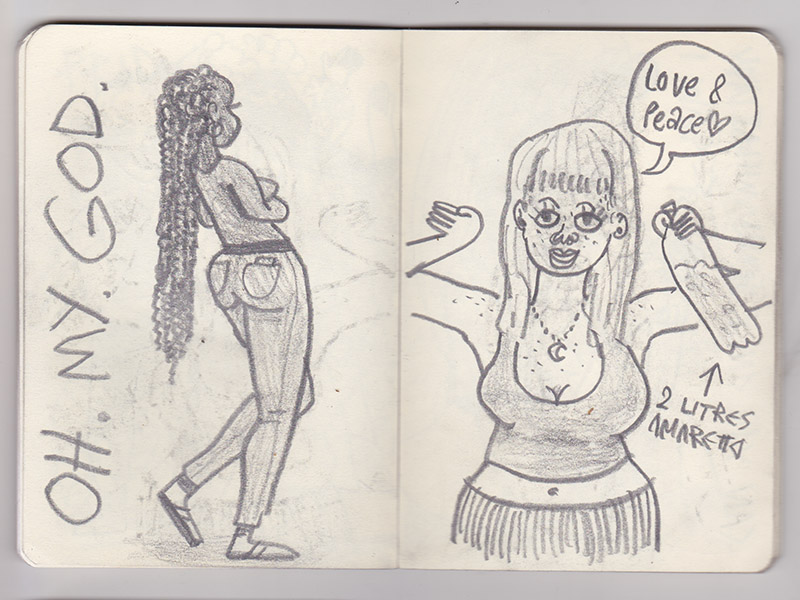 OH. MY. GOD.
Love &
Peace♡
2 LITRES
AMARETTO